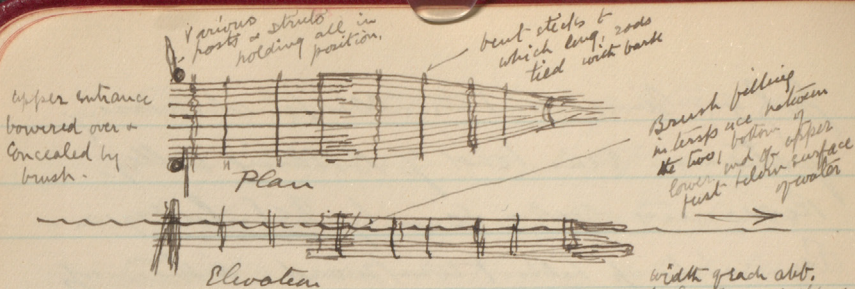 Various
posts & struts
holding all in
position.
bent sticks to
which long, rods
tied with bark
upper entrance
bowered over &
concealed by
brush.
Plan
Brush filling
interspace between
the two, bottom of
lower end of upper
just below surface
of water
Elevation
width of each abt.